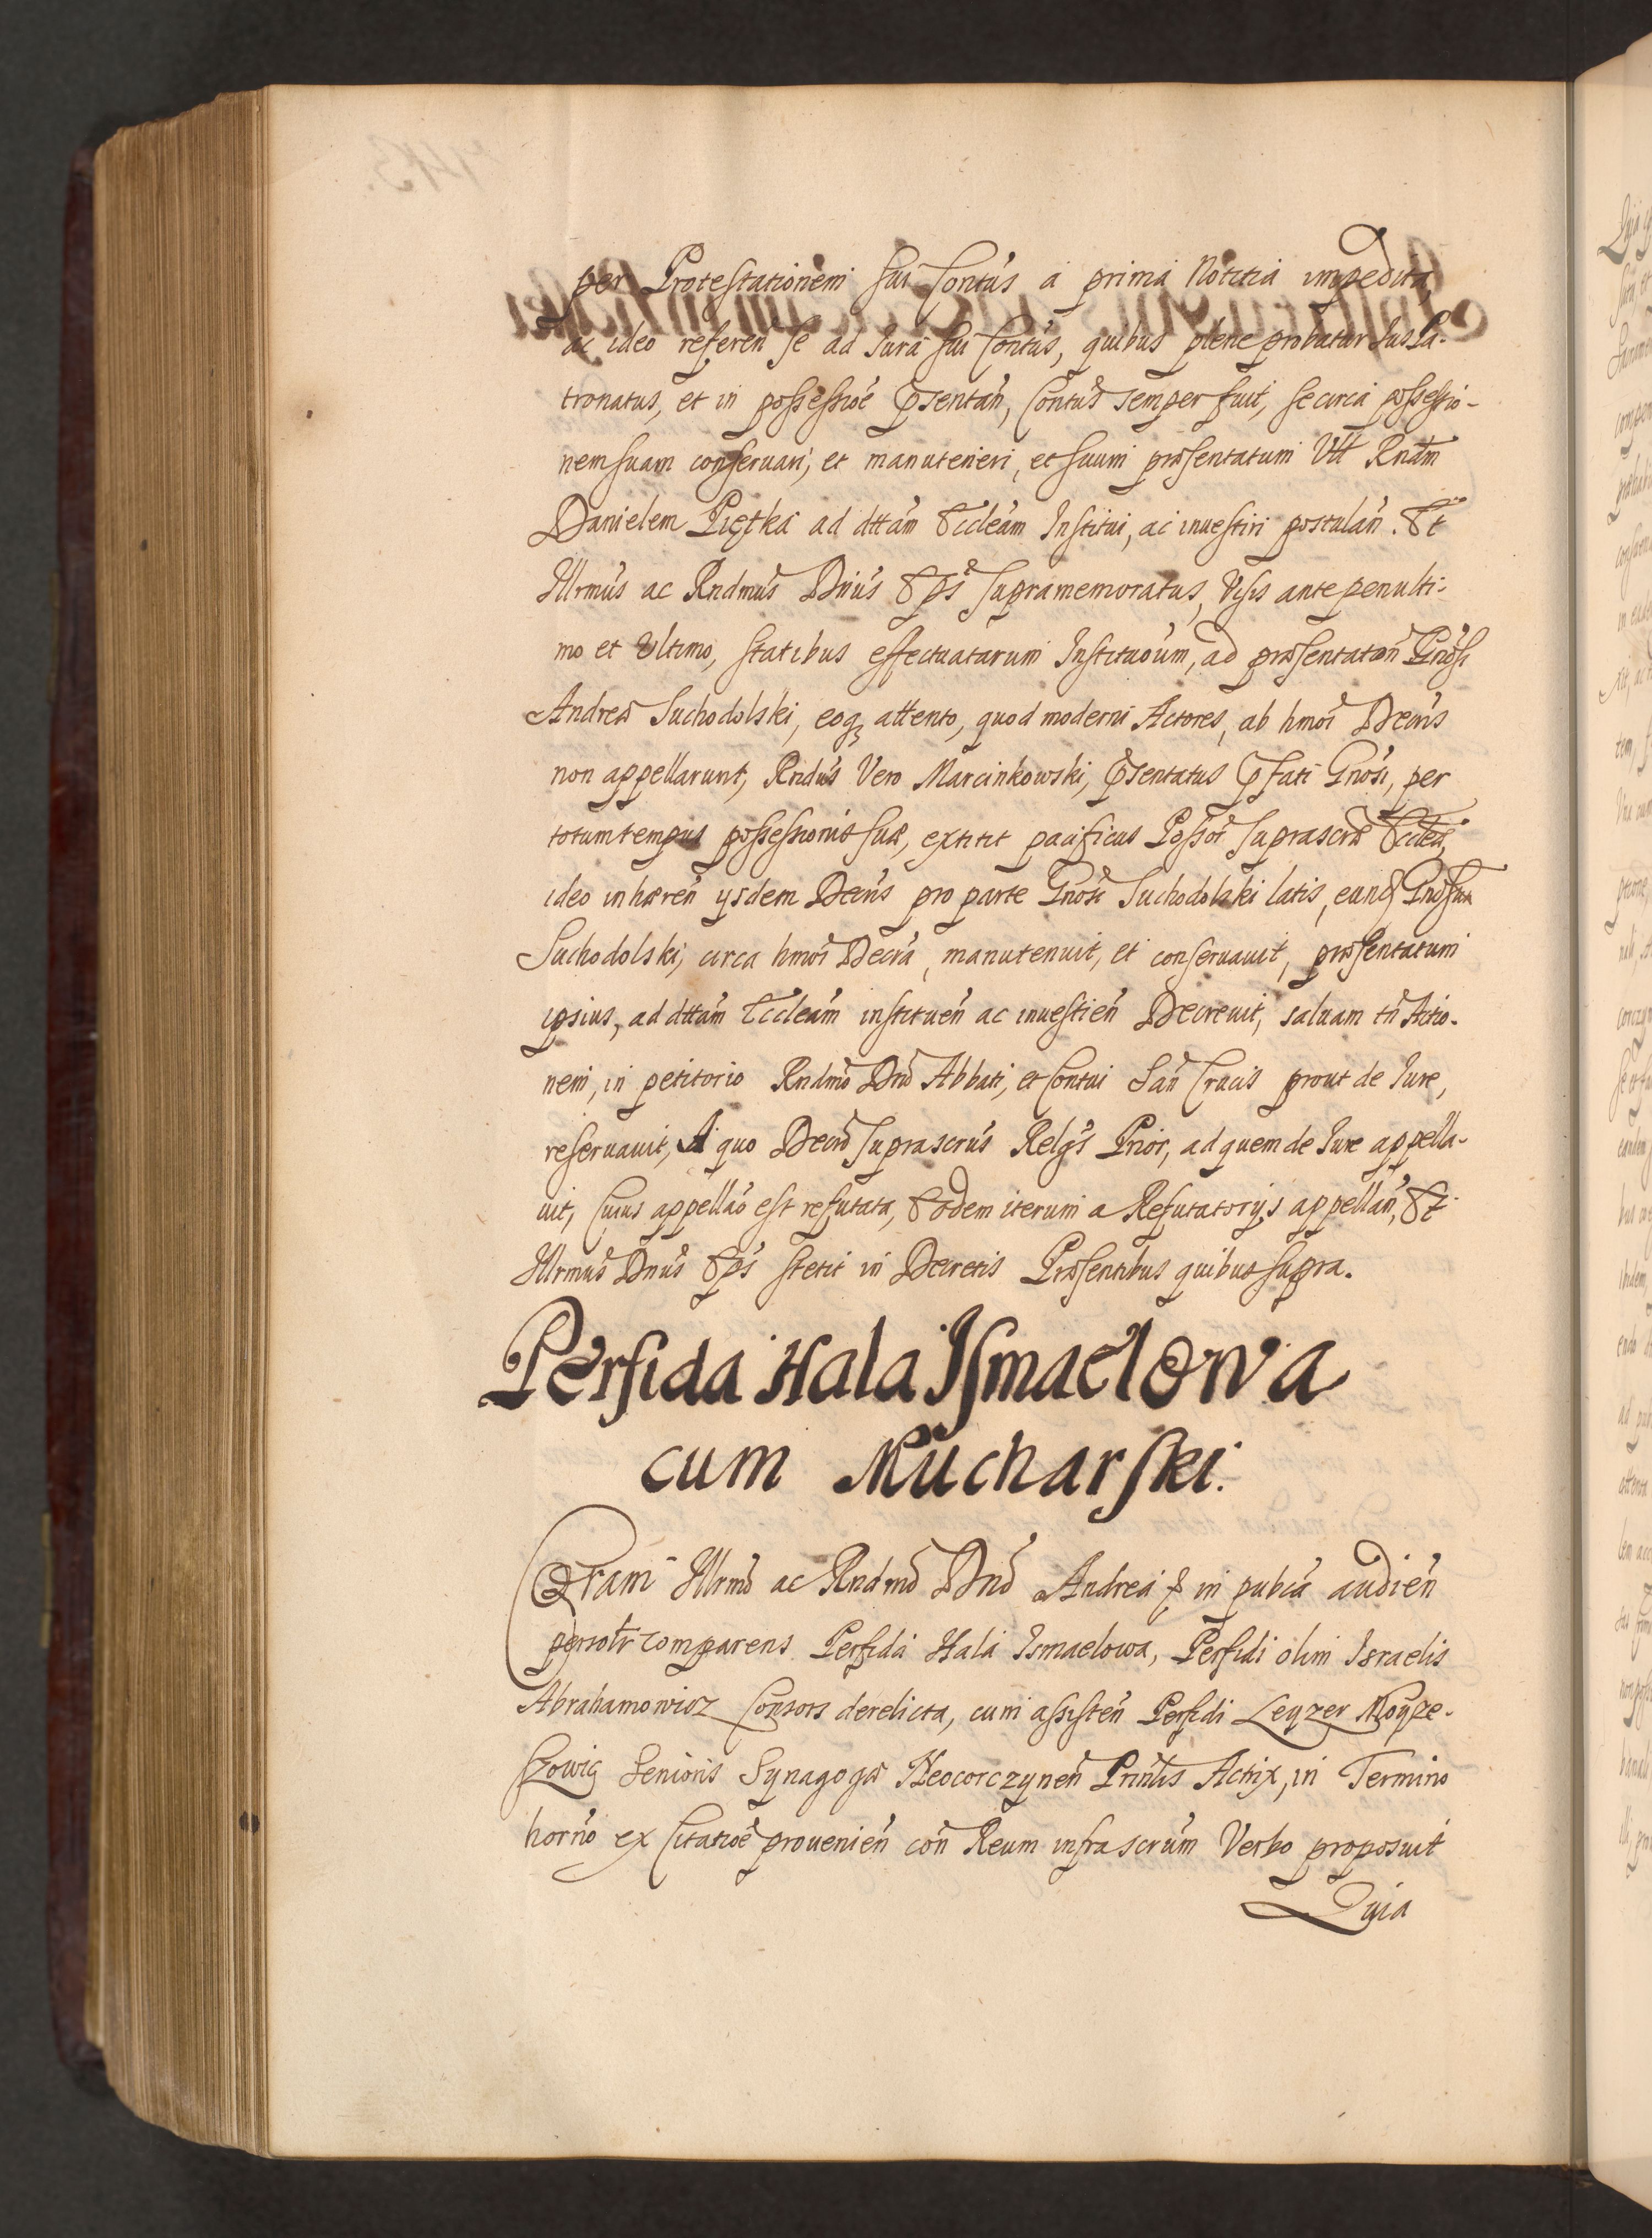 per Protestationem sui Contus a prima Notitia impedita,
ac ideo referen se ad Iura sui Contus, quibus plene probatur Ius Pa-
tronatus, et in possessioe psentan, Contus semper fuit, se circa possessio-
nem suam conseruari, et manuteneri, et suum præsentatum Vtt Rndm
Danielem Piętka ad dttam Eccleam Institui, ac inuestiri postulan. Et
Illrmus ac Rndmus Dnus Eps supramemoratus, Visis antepenulti-
mo et Vltimo, statibus effectuatarum Institutioum, ad præsentaton Gnosi
Andreæ Suchodolski, eoq attento, quod moderni Actores, ab hmoi Decris
non appellarunt, Rndus Vero Marcinkowski, psentatus pfati Gnosi, per
totum tempus possessionis suæ, extitit pacificus Possor suprascræ Eccleæ,
ideo inhæren ysdem Decris pro parte Gnosi Suchodolski latis, eund Gnosum
Suchodolski, circa hmoi Decra, manutenuit, et conseruauit, præsentatum
ipsius, ad dttam Eccleam instituen ac inuestien Decreuit, saluam tn Actio-
nem, in petitorio Rndmo Dno Abbati, et Contui San Crucis prout de Iure,
reseruauit, A quo Decro suprascrus Relgs Prior, ad quem de Iure appella-
uit, Cuius appellao est refutata, Eodem iterum a Refutatorijs appellan, Et
Illrmus Dnus Eps stetit in Decretis Præsentibus quibus supra.
Perfida Hala Ismaelowa
cum Mucharski.
Coram Illrmo ac Rndmo Dno Andrea p in pubca audien
personlr comparens Perfida Hala Ismaelowa, Perfidi olim Israelis
Abrahamowicz Consors derelicta, cum assisten Perfidi Leyzer Moyze-
szowig Senioris Synagogæ Neocorczynen Printis Actrix, in Termino
horno ex Citatioe prouenien con Reum infrascrum Verbo proposuit
Quia